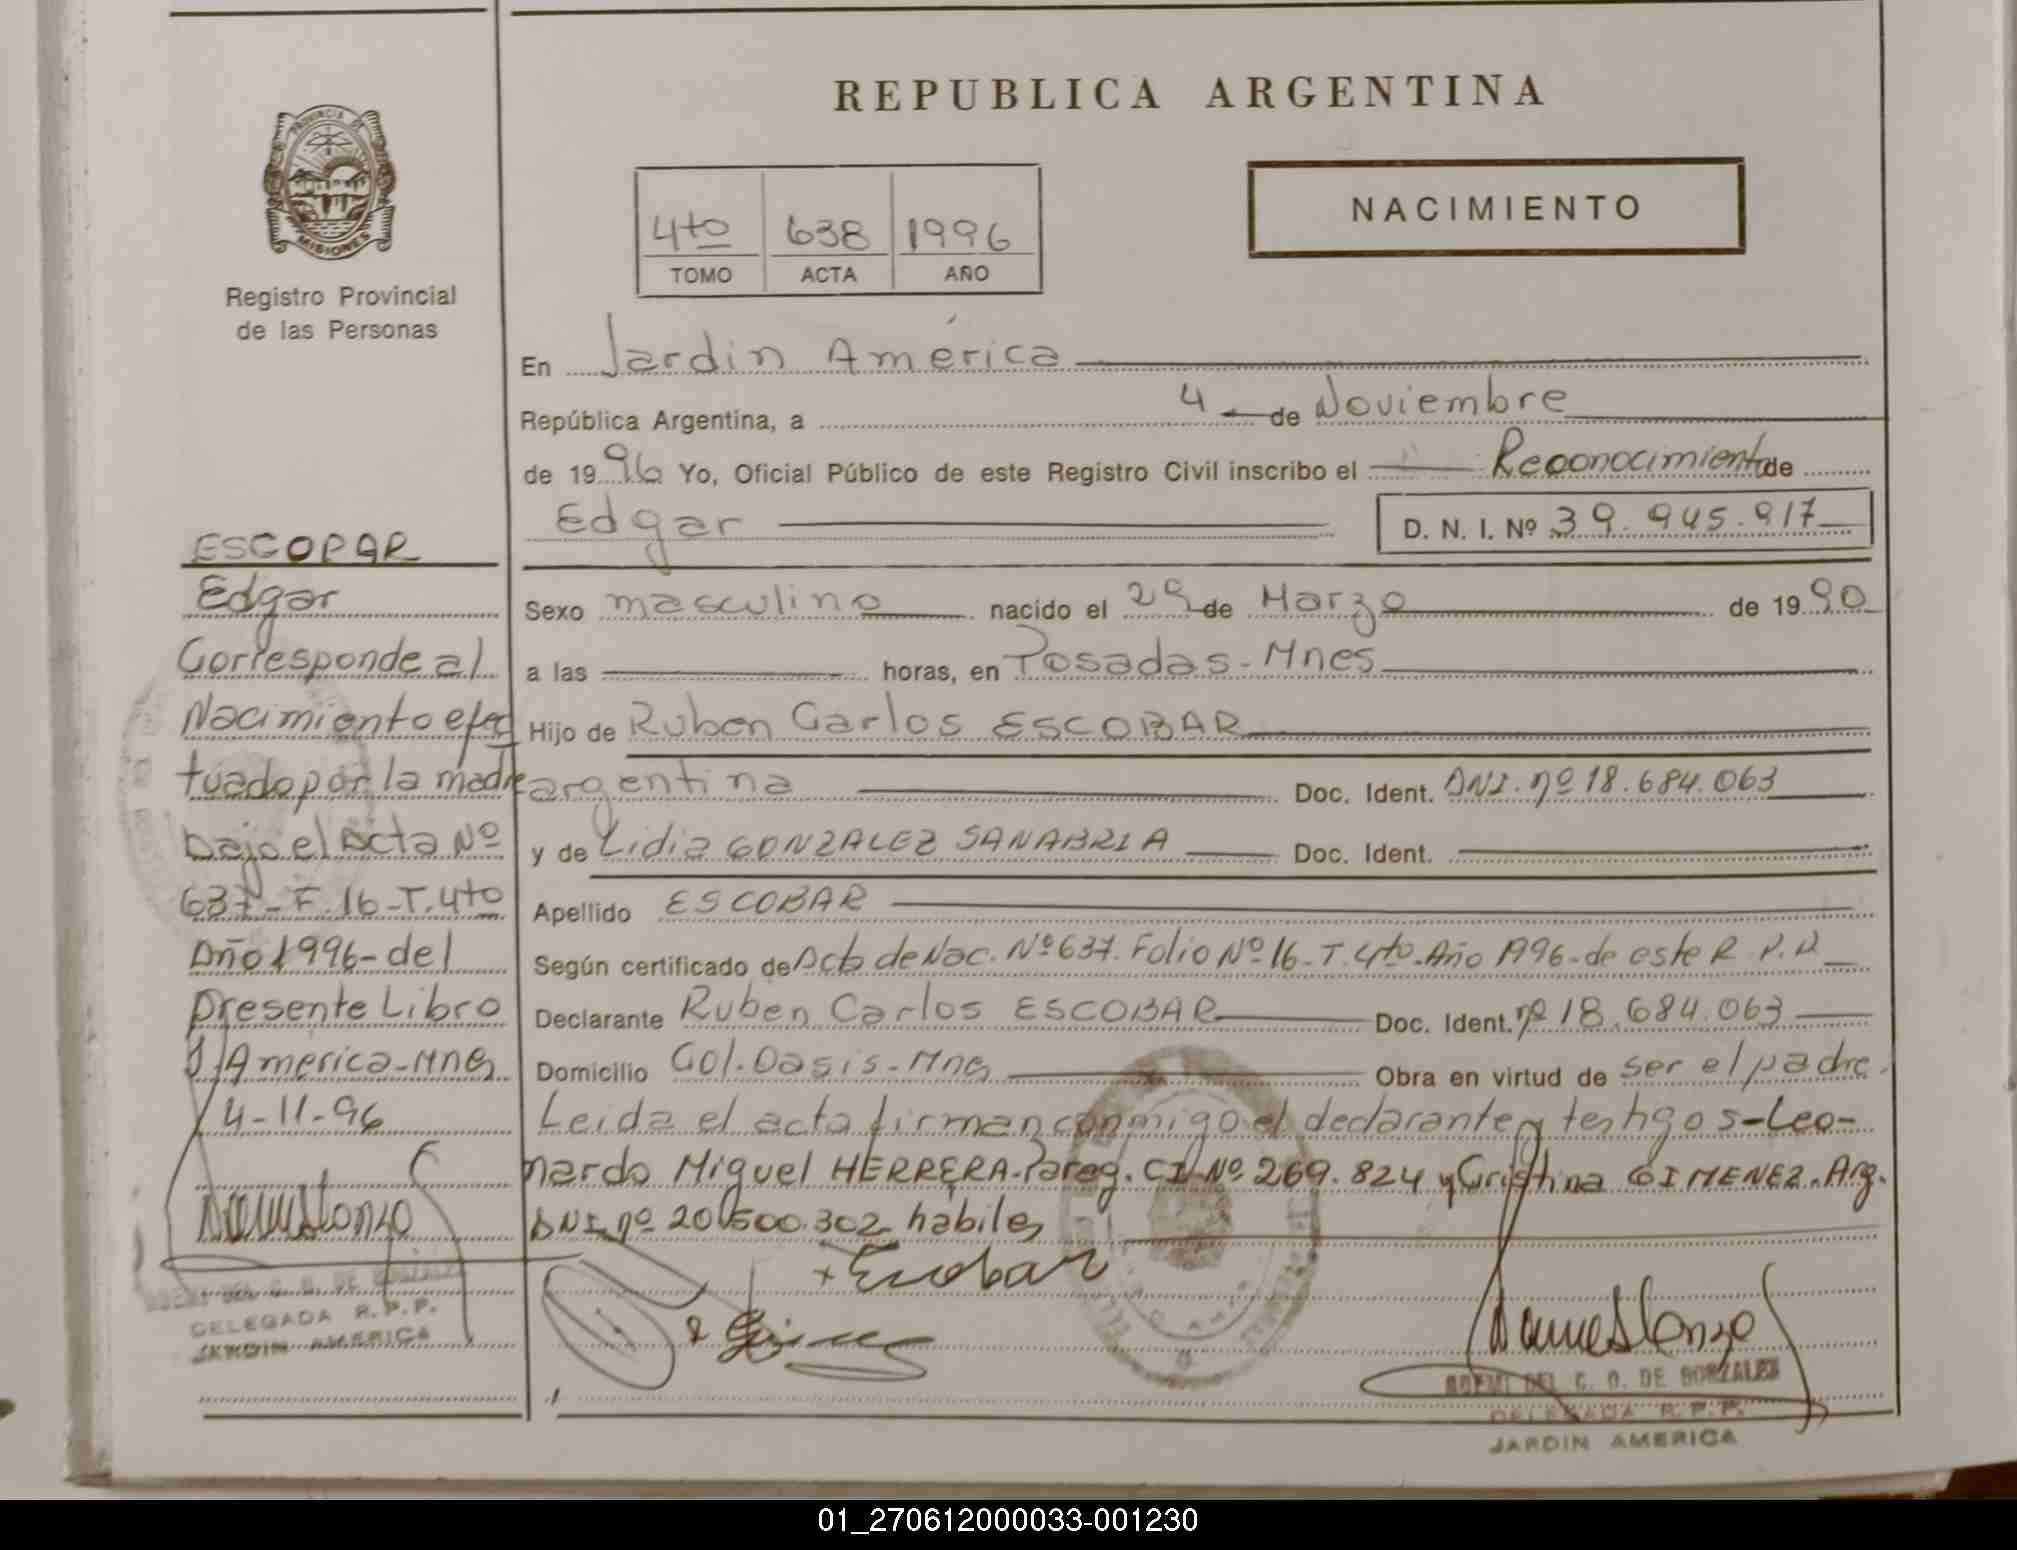 REPUBLICA ARGENTINA
PROVINCIA DE
MISIONES
Registro Provincial
de las Personas
4to 638 1996
TOMO ACTA AÑO
NACIMIENTO
En Jardin América
República Argentina, a 4 de Noviembre
de 1996 Yo, Oficial Público de este Registro Civil inscribo el Reconocimiento de
Edgar D. N. I. Nº 39.945.917
Sexo masculino nacido el 29 de Marzo de 1990
a las horas, en Posadas-Mnes
Hijo de Ruben Carlos ESCOBAR
argentina Doc. Ident. DNI. nº 18.684.063
y de Lidia GONZALEZ SANABRIA Doc. Ident.
Apellido ESCOBAR
Según certificado de Acta de Nac. Nº 637. Folio Nº 16-T.4to-Año 1996-de este R.P.P.
Declarante Ruben Carlos ESCOBAR Doc. Ident. nº 18.684.063
Domicilio Col. Oasis-Mnes Obra en virtud de ser el padre.
Leida el acta firman conmigo el declarante y testigos-Leo-
nardo Miguel HERRERA-Parag. CI-Nº 269.824 y Cristina GIMENEZ. Arg.
DNI nº 20.500.302 habiles
+ Escobar
DEL C. O. DE GONZALEZ
DELEGADA R.P.P.
JARDIN AMERICA
ESCOBAR
Edgar
Corresponde al
Nacimiento efec
tuado por la madre
bajo el Acta Nº
637-F.16-T.4to
Año 1996-del
Presente Libro
J. America-Mnes
4-11-96
DEL C. O. DE GONZALEZ
DELEGADA R.P.P.
JARDIN AMERICA
01_270612000033-001230